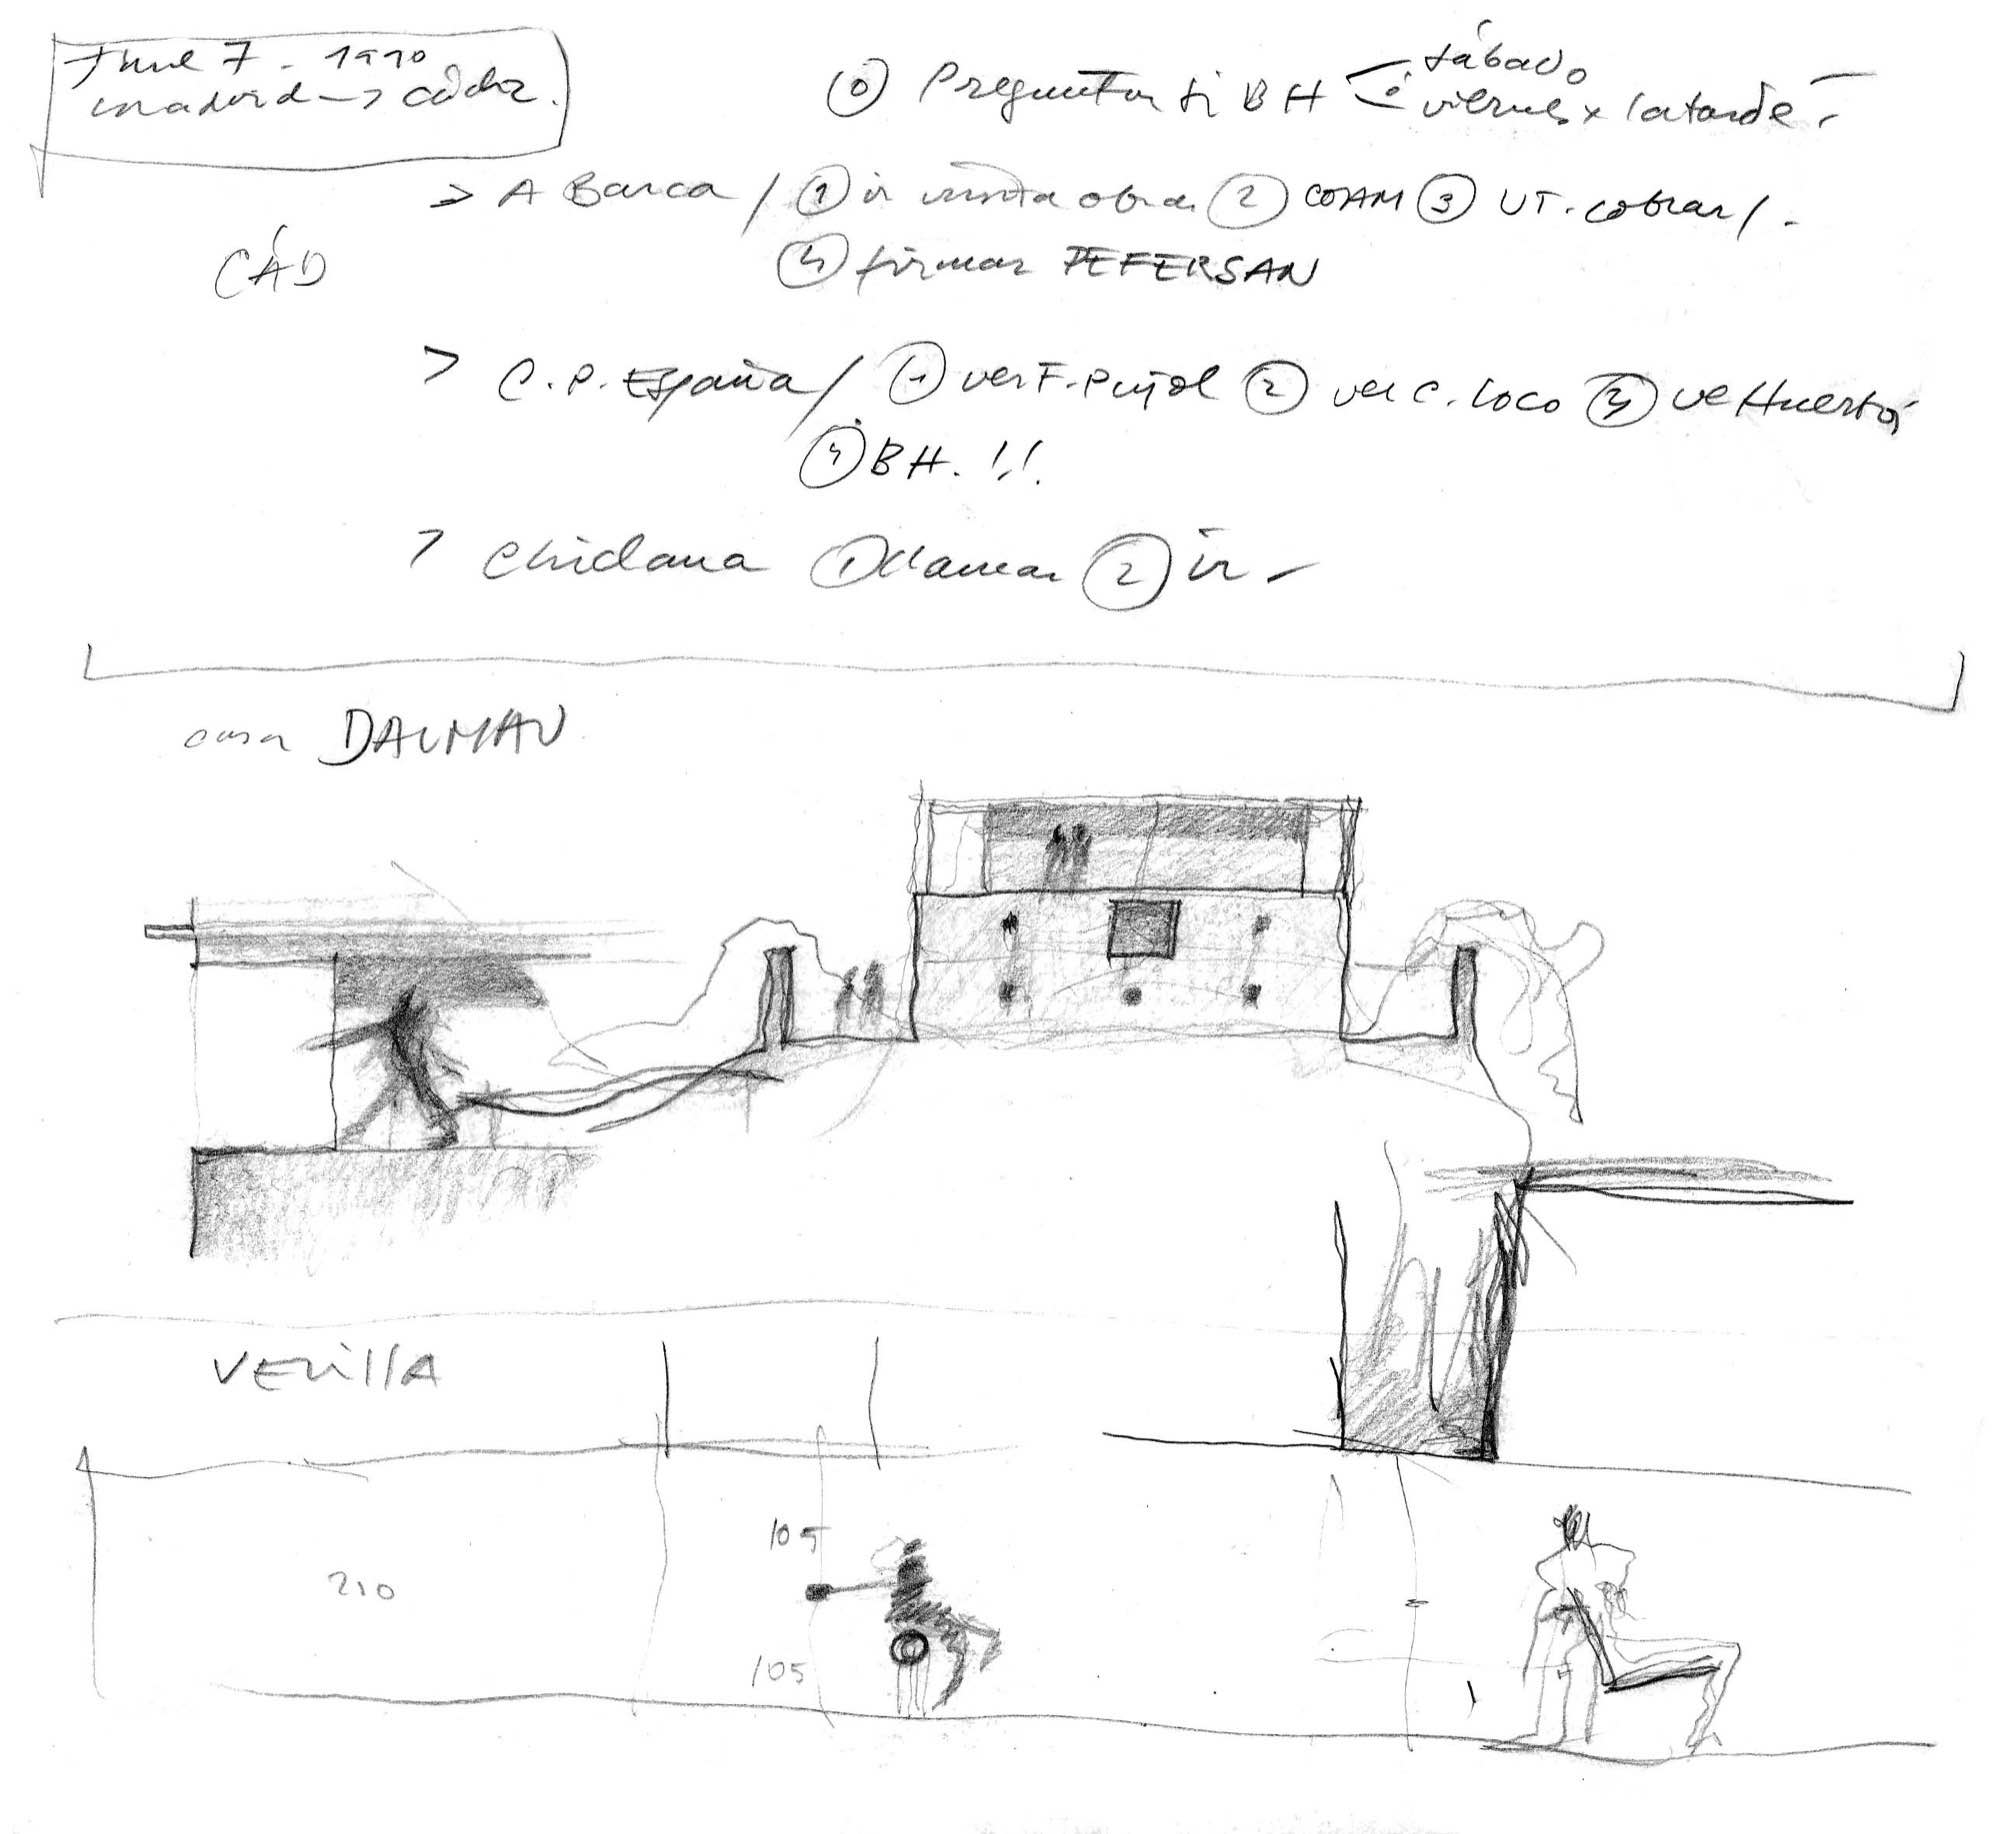 June 7 - 1990
madrid → cádiz.
⓪ Preguntar si BH
sábado
viernes x la tarde.
> A Barca / ① ir visita obras ② COAM ③ UT. cobrar/.
CÁD
④ firmar PEFERSAN
> C.P. España / ① ver F. Pujol ② ver C. Loco ③ ve Huerta
④ BH. !!
> Chiclana ① llamar ② ir -
casa DALMAU
VELILLA
105
210
105